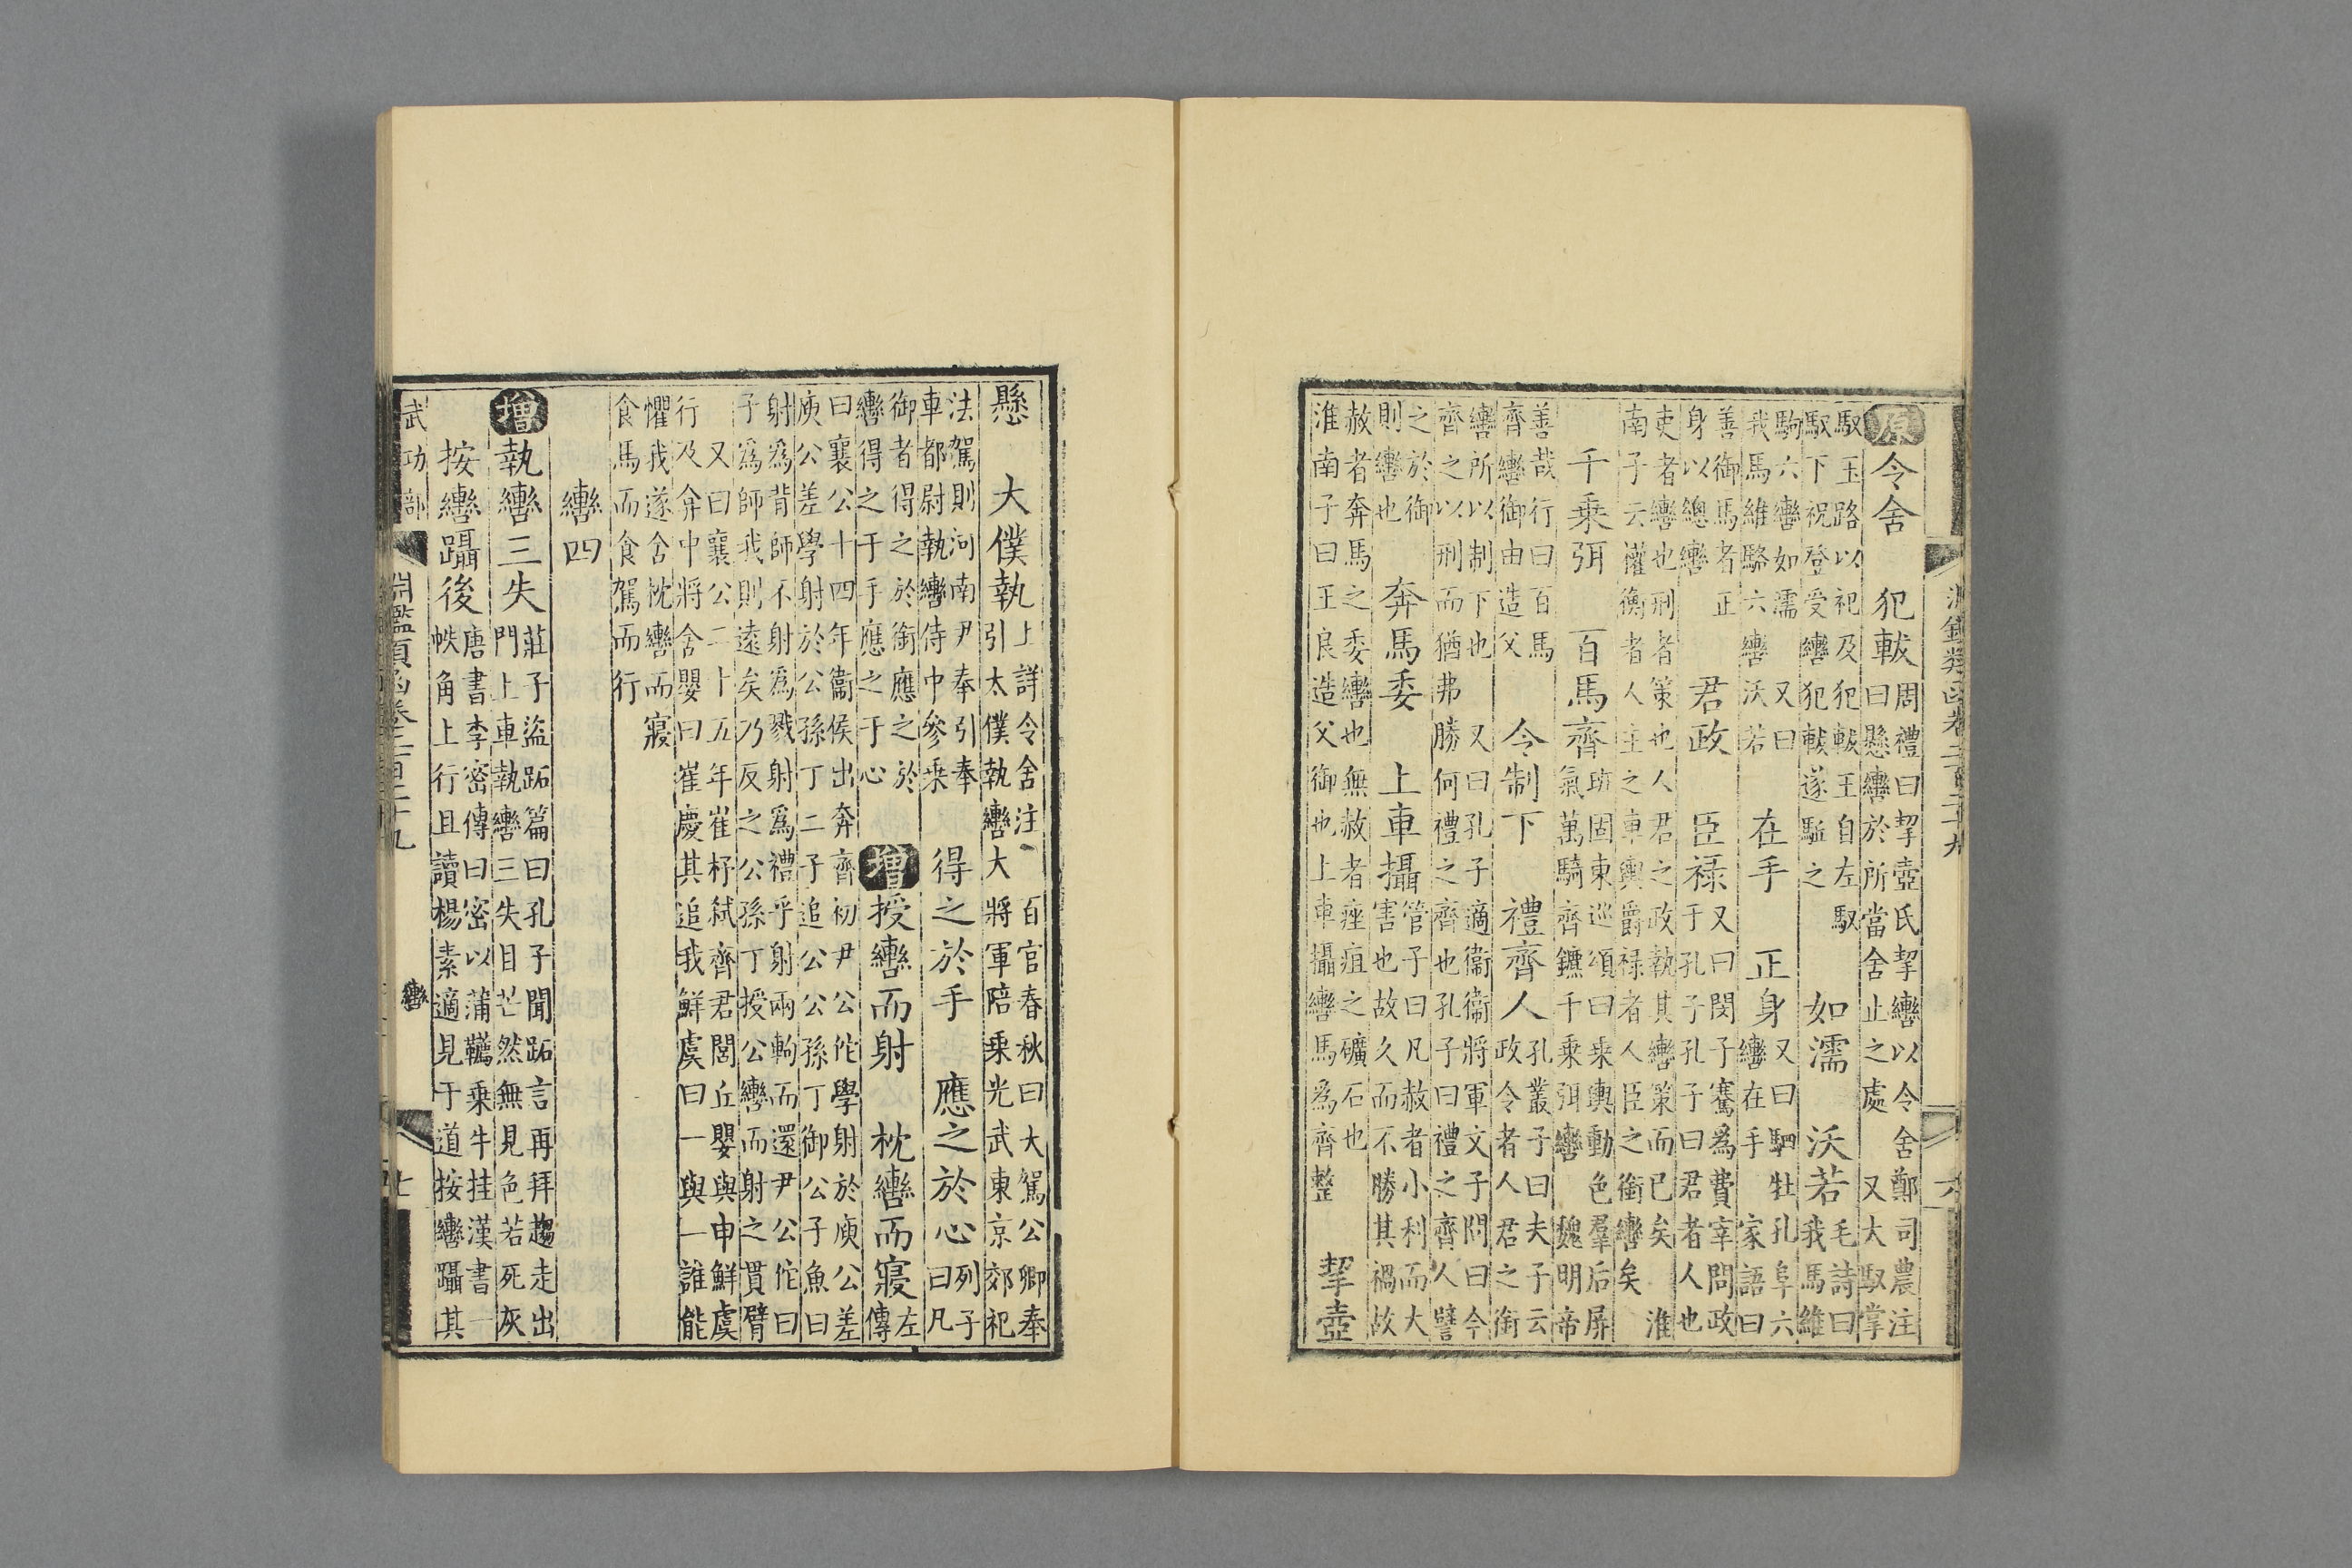 淵鑑類函卷二百二十九 六
原令舍 犯軷
周禮曰挈壺氏挈轡以令舍鄭司農注
曰懸轡於所當舍止之處 又大馭掌
馭玉路以祀及犯軷王自左馭
馭下祝登受轡犯軷遂驅之
如濡 沃若
毛詩曰
我馬維
駒六轡如濡 又曰
我馬維駱六轡沃若
在手 正身
又曰駟牡孔阜六
轡在手 家語曰
善御馬者正
身以總轡
君政 臣祿
又曰閔子騫爲費宰問政
于孔子孔子曰君者人也
吏者轡也刑者策也人君之政執其轡策而已矣 淮
南子云權衡者人主之車輿爵祿者人臣之銜轡矣
千乘弭 百馬齊
班固東巡頌曰乗輿動色羣后屏
氣萬騎齊鑣千乗弭轡 魏明帝
善哉行曰百馬
齊轡御由造父
令制下 禮齊人
孔叢子曰夫子云
政令者人君之銜
轡所以制下也 又曰孔子適衞衞將軍文子問曰今
齊之以刑而猶弗勝何禮之齊也孔子曰禮之齊人譬
之於御
則轡也
奔馬委 上車攝
管子曰凡赦者小利而大
害也故久而不勝其禍故
赦者奔馬之委轡也無赦者痤疽之礦石也
淮南子曰王良造父御也上車攝轡馬爲齊整
挈壺
懸 大僕執
上詳令舍注 百官春秋曰大駕公卿奉
引太僕執轡大將軍陪乗光武東京郊祀
法駕則河南尹奉引奉
車都尉執轡侍中參乗
得之於手 應之於心
列子
曰凡
御者得之於銜應之於
轡得之于手應之于心
增授轡而射 枕轡而寢
左
傳
曰襄公十四年衞侯出奔齊初尹公佗學射於庾公差
庾公差學射於公孫丁二子追公公孫丁御公子魚曰
射爲背師不射爲戮射爲禮乎射兩軥而還尹公佗曰
子爲師我則遠矣乃反之公孫丁授公轡而射之貫臂
又曰襄公二十五年崔杼弒齊君閭丘嬰與申鮮虞
行及弇中將舍嬰曰崔慶其追我鮮虞曰一與一誰能
懼我遂舍枕轡而寢
食馬而食駕而行
轡四
增執轡三失
莊子盜跖篇曰孔子聞跖言再拜趨走出
門上車執轡三失目芒然無見色若死灰
按轡躡後
唐書李密傳曰密以蒲韉乗牛挂漢書一
帙角上行且讀楊素適見于道按轡躡其
武功部 淵鑑類函卷二百二十九 轡 七